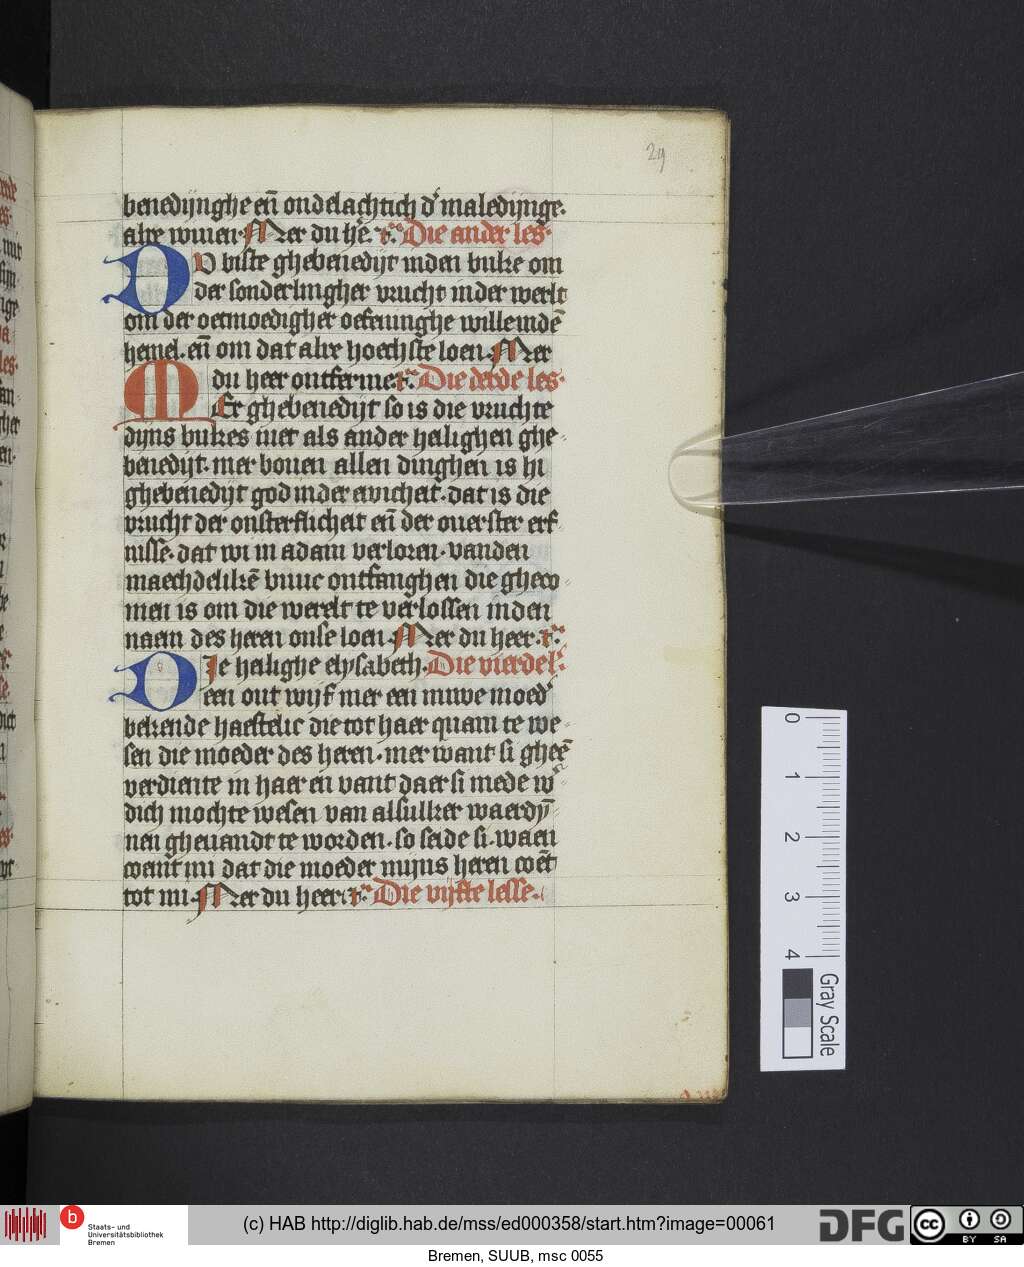 29
benedijnghe eñ ondelachtich d' maledijnge.
alre wiuen. Mer du he. r. Die ander les.
DV biste ghebenedijt inden buke om
der sonderlingher vrucht in der werlt
om der oetmoedigher oefeninghe wille indē
hemel. eñ om dat alre hoechste loen. Mer
du heer ontferme. r. Die derde les.
MEr ghebenedijt so is die vruchte
dijns bukes niet als ander heilighen ghe
benedijt. mer bouen allen dinghen is hi
ghebenedijt god in der ewicheit. dat is die
vrucht der onsterflicheit eñ der ouerster erf
nisse. dat wi in adam verloren. vanden
maechdelikē buuc ontfanghen die gheco
men is om die werelt te verlossen inden
naem des heren onse loen. Mer du heer. r.
DIe heilighe elysabeth. Die vierde l.
een out wijf mer een niwe moed'
bekende haestelic die tot haer quam te we
sen die moeder des heren. mer want si gheē
verdiente in haer en vant daer si mede w
dich mochte wesen van alsulker waerdij
nen gheuandt te worden. so seide si. waen
coemt mi dat die moeder mijns heren coēt
tot mi. Mer du heer. r. Die vijfte lesse.
0
1
2
3
4
Gray Scale
b
Staats- und
Universitätsbibliothek
Bremen
(c) HAB http://diglib.hab.de/mss/ed000358/start.htm?image=00061
DFG
cc BY SA
Bremen, SUUB, msc 0055